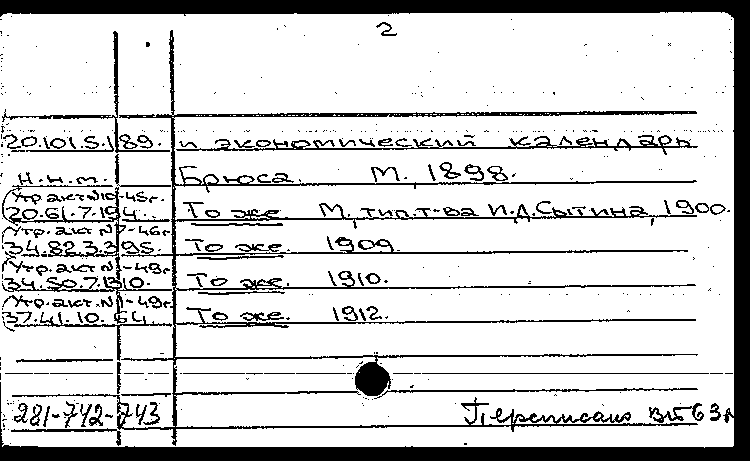 2
20.101.5.189. и экономический календарь
Н.н.т. Брюса. М., 1898.
(Утр. акт N10-45г.
20.61.7.194. То же. М., тип. т-ва И.Д.Сытина, 1900.
(Утр. акт N7-46г
34.82.3.395. То же. 1909.
(Утр. акт N1-49г
34.50.7.1310. То же. 1910.
(Утр. акт. N1-49г
37.41.10.64. То же. 1912.
281-742-743 Переписана 63г